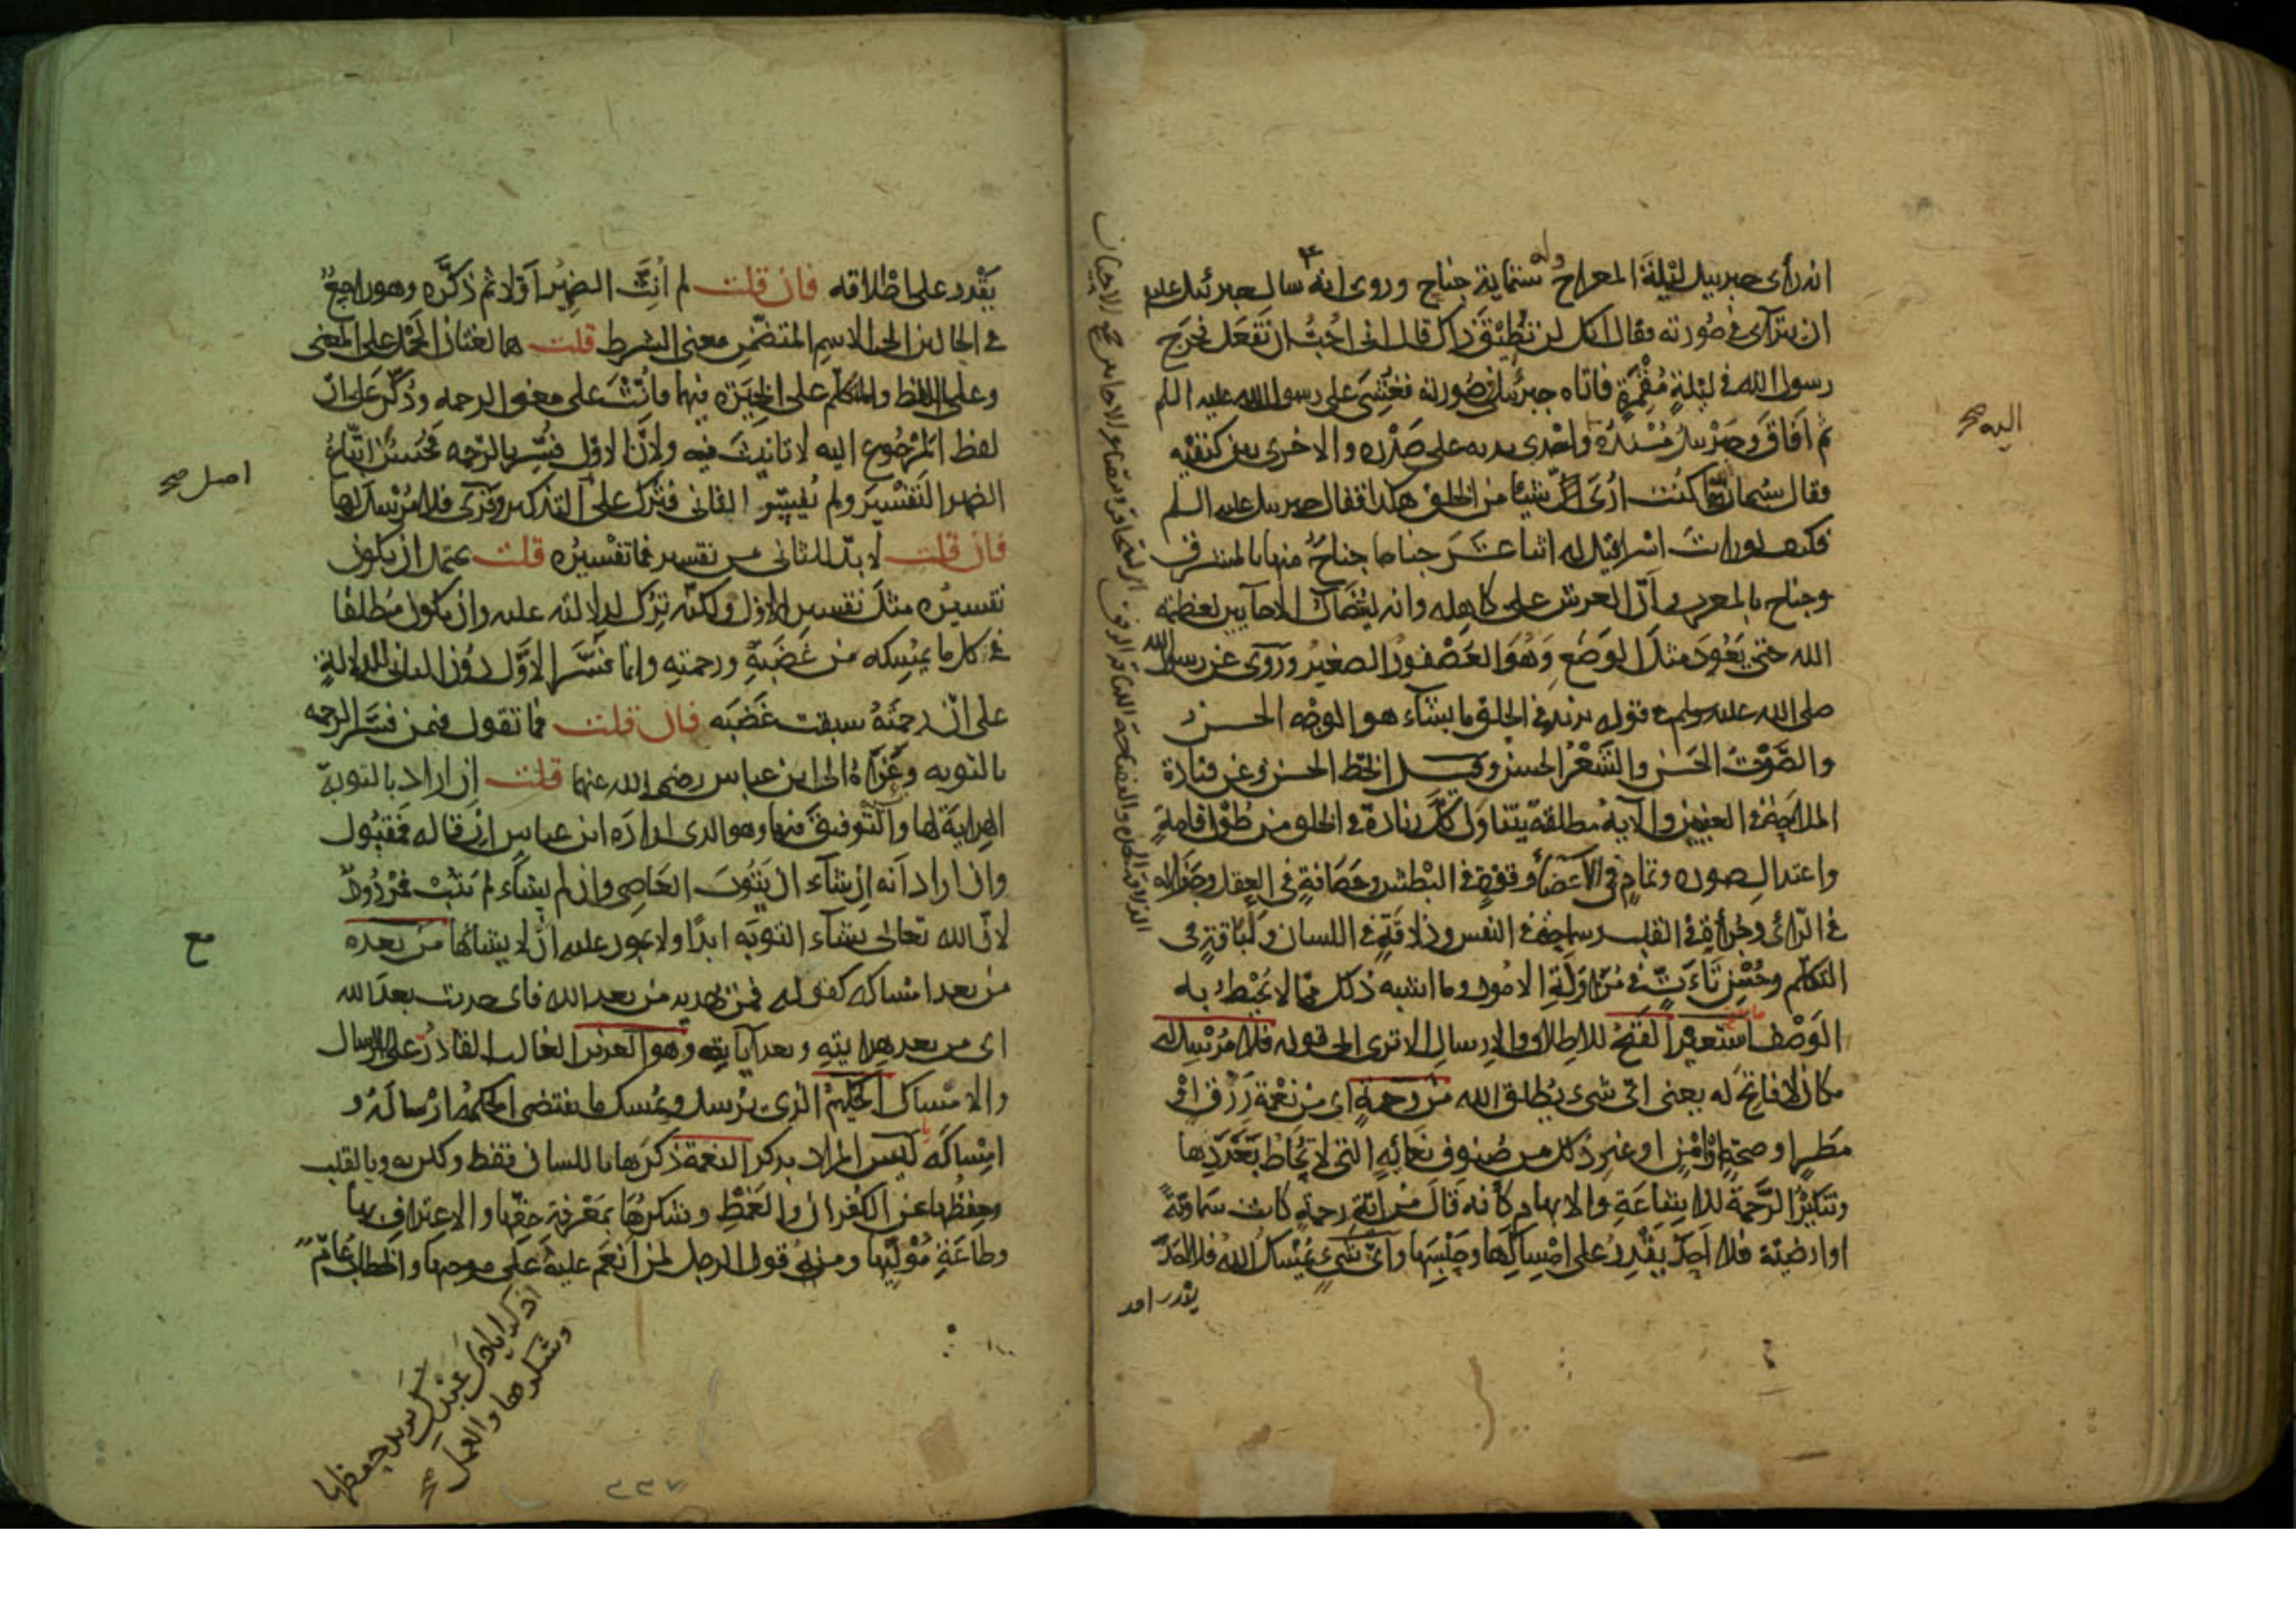 انه رأى جبريل ليلة المعراج وله ستماية جناح وروى انه سال جبرئيل عليه
ان يتراآى في صورته فقال انك لن تطيق ذاك قال انى احب ان تفعل فخرج
رسول الله في ليلة مقمرة فاتاه جبرئيل في صورته فغشى على رسول الله عليه السلم
ثم افاق وجبريل مسنده واحدى يديه على صدره والاخرى بين كتفيه
فقال سبحان الله ما كنت ارى ان شيئا من الخلق هكذا فقال جبريل عليه السلم
فكيف لو رايت اسرافيل له اثنا عشر جناحا جناح منها بالمشرق
وجناح بالمغرب وان العرش على كاهله وانه ليتضاءل الاحايين لعظمة
الله حتى يعود مثل الوصع وهو العصفور الصغير وروى عن رسول الله
صلى الله عليه وسلم في قوله يزيد في الخلق ما يشاء هو الوجه الحسن
والصوت الحسن والشعر الحسن وقيل الخط الحسن وعن قتادة
الملاحة في العينين والاية مطلقة يتناول كل زيادة في الخلق من طول قامة
واعتدال صوره وتمام في الاعضاء وقوة في البطش وحصافة في العقل وجزالة
في الرأى وجرأة في القلب وسماحة في النفس وذلاقة في اللسان ولباقة في
التكلم وحسن تأت في مزاولة الامور وما اشبه ذلك مما لا يحيط به
الوصف استعير الفتح للاطلاق والارسال الا ترى الى قوله فلا مرسل له
مكان لا فاتح له يعنى اى شىء يطلق الله من رحمة اى من نعمة رزق او
مطر او صحة او امن او غير ذلك من صنوف نعمائه التى لا يحاط بعددها
وتنكير الرحمة للاشاعة والابهام كأنه قال من اية رحمة كانت سماوية
او ارضية فلا احد يقدر على امساكها وحبسها واى شىء يمسك الله فلا احد
يقدر
اليه صح
يقدر على اطلاقه فان قلت لم انث الضمير اولا ثم ذكره وهو راجع
في الحالين الى الاسم المتضمن معنى الشرط قلت هما لغتان الحمل على المعنى
وعلى اللفظ والمتكلم على الخيرة فيهما فانث على معنى الرحمه وذكر على ان
لفظ المرجوع اليه لا تانيث فيه ولان الاول فسر بالرحمه فحسن اتباع
الضمير التفسير ولم يفسر الثانى فترك على التذكير وقرى فلا مرسل لها
فان قلت لا بد للثانى من تفسير فما تفسيره قلت يحتمل ان يكون
تفسيره مثل تفسير الاول ولكنه ترك لدلالته عليه وان يكون مطلقا
في كل ما يمسكه من غضبه ورحمته وانما فسر الاول دون الثانى للدلالة
على ان رحمته سبقت غضبه فان قلت فما تقول فيمن فسر الرحمه
بالتوبه وعزاه الى ابن عباس رضى الله عنهما قلت ان اراد بالتوبة
الهداية لها والتوفيق فيها وهو الذى اراده ابن عباس ان قاله فمقبول
وان اراد انه ان يشاء ان يتوب العاصى وان لم يشاء لم يتب فمردود
لان الله تعالى يشاء التوبة ابدا ولا يجوز عليه ان لا يشائها من بعده
من بعد امساكه كقوله فمن يهديه من بعد الله فاى حديث بعد الله
اى من بعد هدايته وبعد آياته وهو العزيز الغالب القادر على الارسال
والامساك الحكيم الذى يرسل ويمسك ما يقتضى الحكمة ارساله و
امساكه ليس المراد بذكر النعمة ذكرها باللسان فقط ولكن به وبالقلب
وحفظها عن الكفران والغمط وشكرها بمعرفة حقها والاعتراف بها
وطاعة موليها ومنه قول الرجل لمن انعم عليه على موجبها والخطاب عام
اصل صح
مع
اذكر ايادى عندك يريد حفظها
وشكرها والعمل صح
٢٢٧